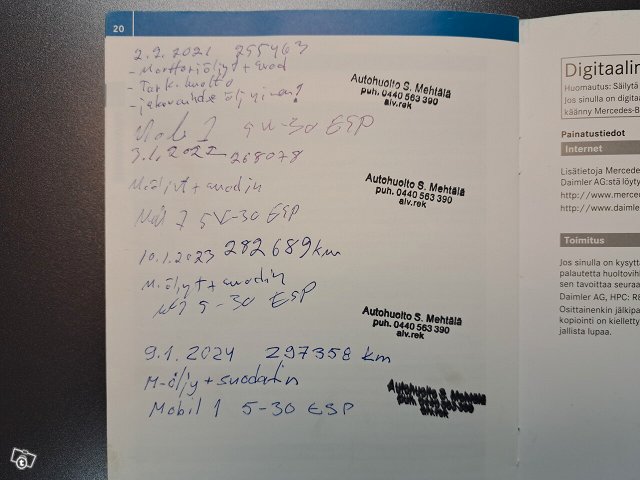 20
2.2.2021 255463
- Moottoriöljyt + suod
- Tark. huolto
- jakovaihde öljyineen?
Mobil 1 5W-30 ESP
3.1.2022 268078
M-öljyt + suodin
Mobil 1 5W-30 ESP
10.1.2023 282689km
M-öljyt + suodin
5-30 ESP
9.1.2024 297358 km
M-öljy + suodatin
Mobil 1 5-30 ESP
Autohuolto S. Mehtälä
puh. 0440 563 390
alv.rek
Autohuolto S. Mehtälä
puh. 0440 563 390
alv.rek
Autohuolto S. Mehtälä
puh. 0440 563 390
alv.rek
Autohuolto S. Mehtälä
Digitaalin
Huomautus: Säilytä
Jos sinulla on digita
käänny Mercedes-B
Painatustiedot
Internet
Lisätietoja Mercede
Daimler AG:stä löyty
http://www.merce
http://www.daimle
Toimitus
Jos sinulla on kysytt
palautetta huoltovih
sen tavoittaa seuraa
Daimler AG, HPC: R
Osittainenkin jälkipa
kopiointi on kiellety
jallista lupaa.